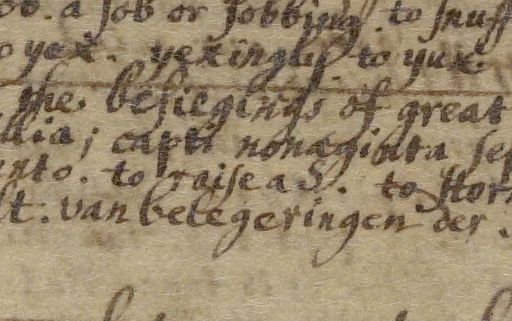 ob. a sob or sobbing. to snuff
o yex. yexingly. to yux
the. besiegings of great
llia; capti nonaginta sep
nto. to raise a S. to storm
lt. van belegeringen der.